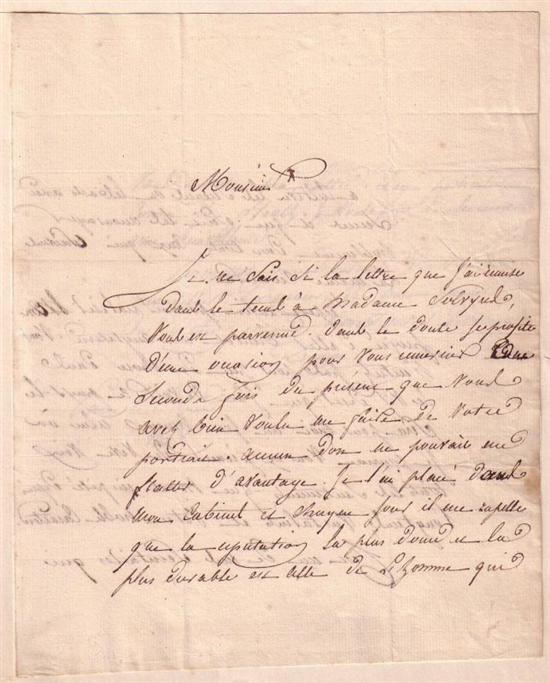 Monsieur
Je ne sais si la lettre que j'ai remise
dans le tems à Madame
vous est parvenue, dans le doute je profite
d'une occasion pour vous remercier une
seconde fois du présent que vous
avez bien voulu me faire de votre
portrait aucun don ne pouvait me
flatter d'avantage. Je l'ai placé dans
mon Cabinet et chaque jour il me rapelle
que la reputation la plus douce et la
plus durable est celle de L'homme qui